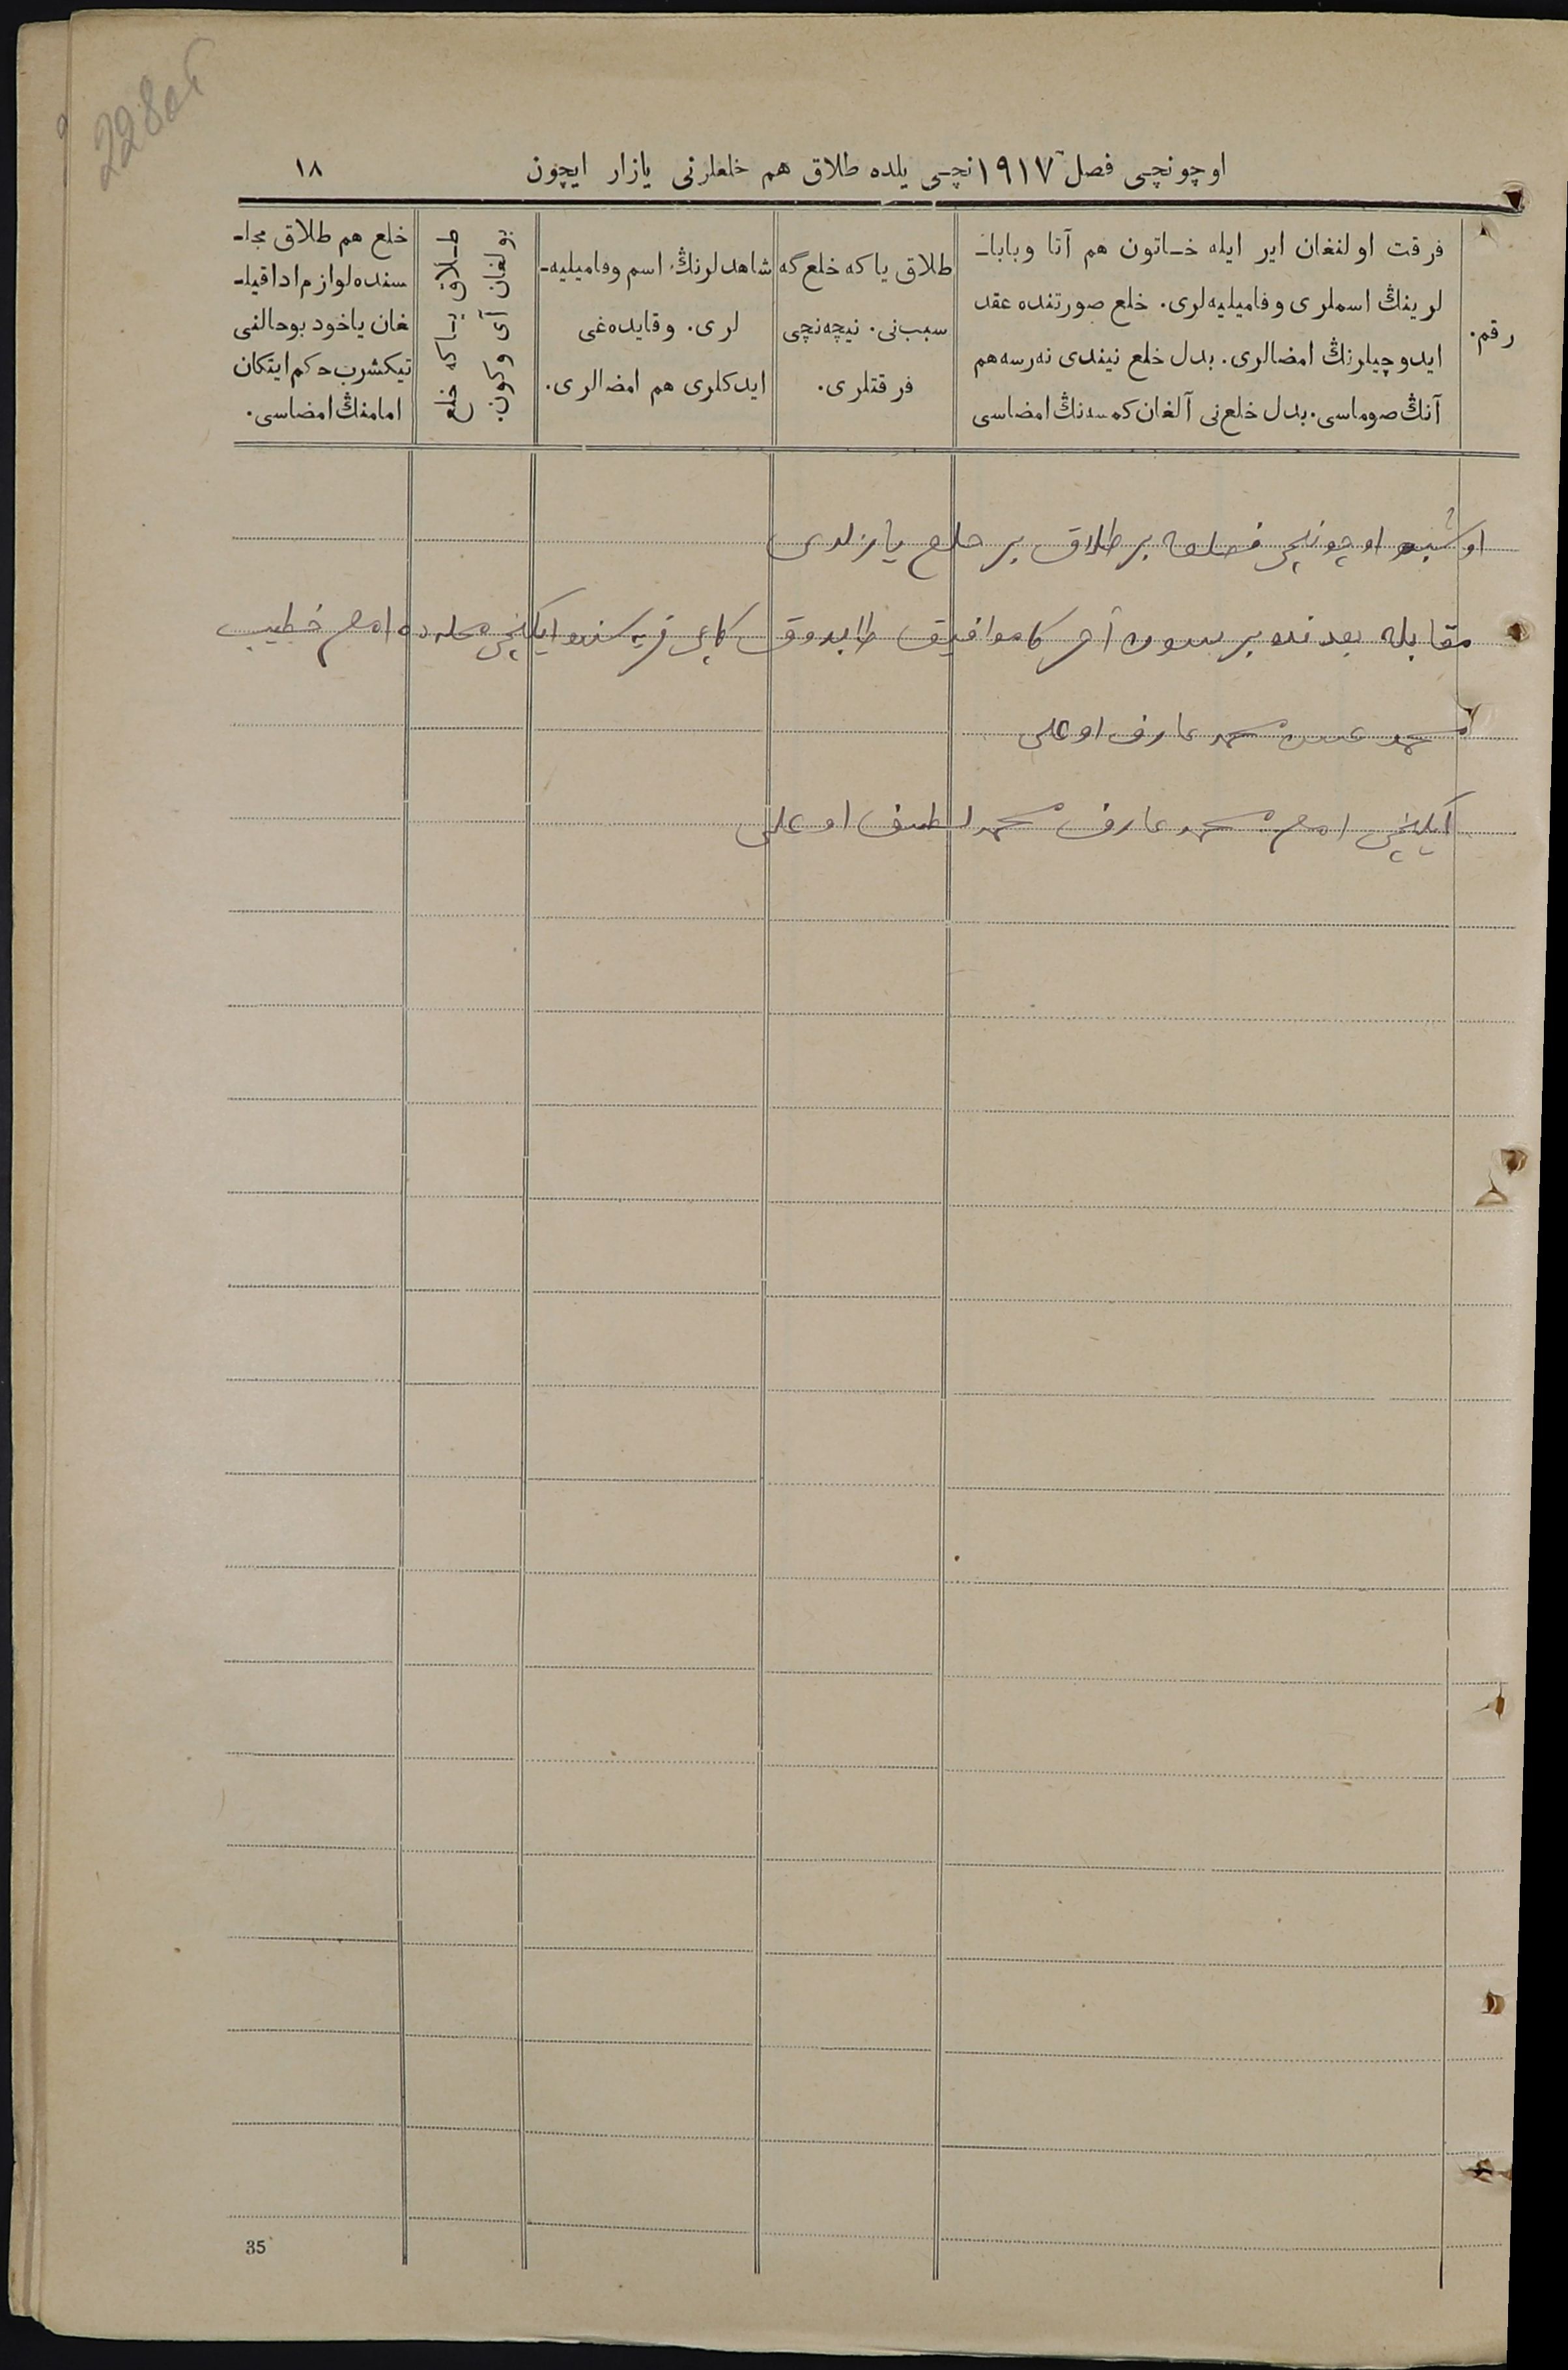 228об
اوچونچی فصل ۱۹۱۷نچی یلده طلاق هم خلعلرنی یازار ایچون
۱۸
رقم.
فرقت اولنغان ایر ایله خاتون هم آتا وبابا-
لرینڭ اسملری وفامیلیه‌لری. خلع صورتنده عقد
ایدوچیلرنڭ امضالری. بدل خلع نیندی نه‌رسه هم
آنڭ صوماسی. بدل خلع‌نی آلغان کمسه‌نڭ امضاسی
طلاق یاکه خلع‌گه
سبب‌نی. نیچه‌نچی
فرقتلری.
شاهدلرنڭ اسم وفامیلیه-
لری. وقایده‌غی
ایدکلری هم امضالری.
طلاق یاکه خلع
بولغان آی وکون.
خلع هم طلاق مجل-
سنده لوازم ادا قیل-
غان یاخود بوحالنی
تیکشرب حکم ایتکان
امامنڭ امضاسی.
اوشبو اوچونچی فصلده بر طلاق بر خلع یازلدی
مقابله بعدنده بر سون آخرکا موافیق قریه سنده ایکنچی محله ده امام خطیب
محمد عارف اوغلی
ایکنچی امام محمد عارف محمد لطیف اوغلی
35